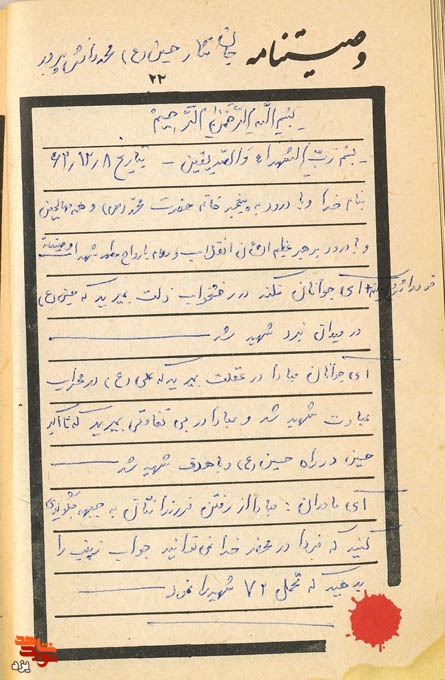 وصیتنامه
جان نثار حسین (ع) محمد دانش پرور
۲۲
بسم الله الرحمن الرحیم
بسم رب الشهداء و الصدیقین - بتاریخ ۶۲/۱۲/۸
بنام خدا و با درود به پیغمبر خاتم حضرت محمد (ص) و همه صالحین
و با درود بر رهبر عظیم الشان انقلاب و سلام بارواح مطهر شهدا وصیتنامه
خود را شروع میکنم ای جوانان نکند در رختخواب ذلت بمیرید که حسین (ع)
در میدان نبرد شهید شد
ای جوانان مبادا در غفلت بمیرید که علی (ع) در محراب
عبادت شهید شد و مبادا در بی تفاوتی بمیرید که علی اکبر
حسین در راه حسین (ع) و با هدف شهید شد
ای مادران: مبادا از رفتن فرزندانتان به جبهه جلوگیری
کنید که فردا در محضر خدا نمی توانید جواب زینب را
بدهید که تحمل ۷۲ شهید را نمود